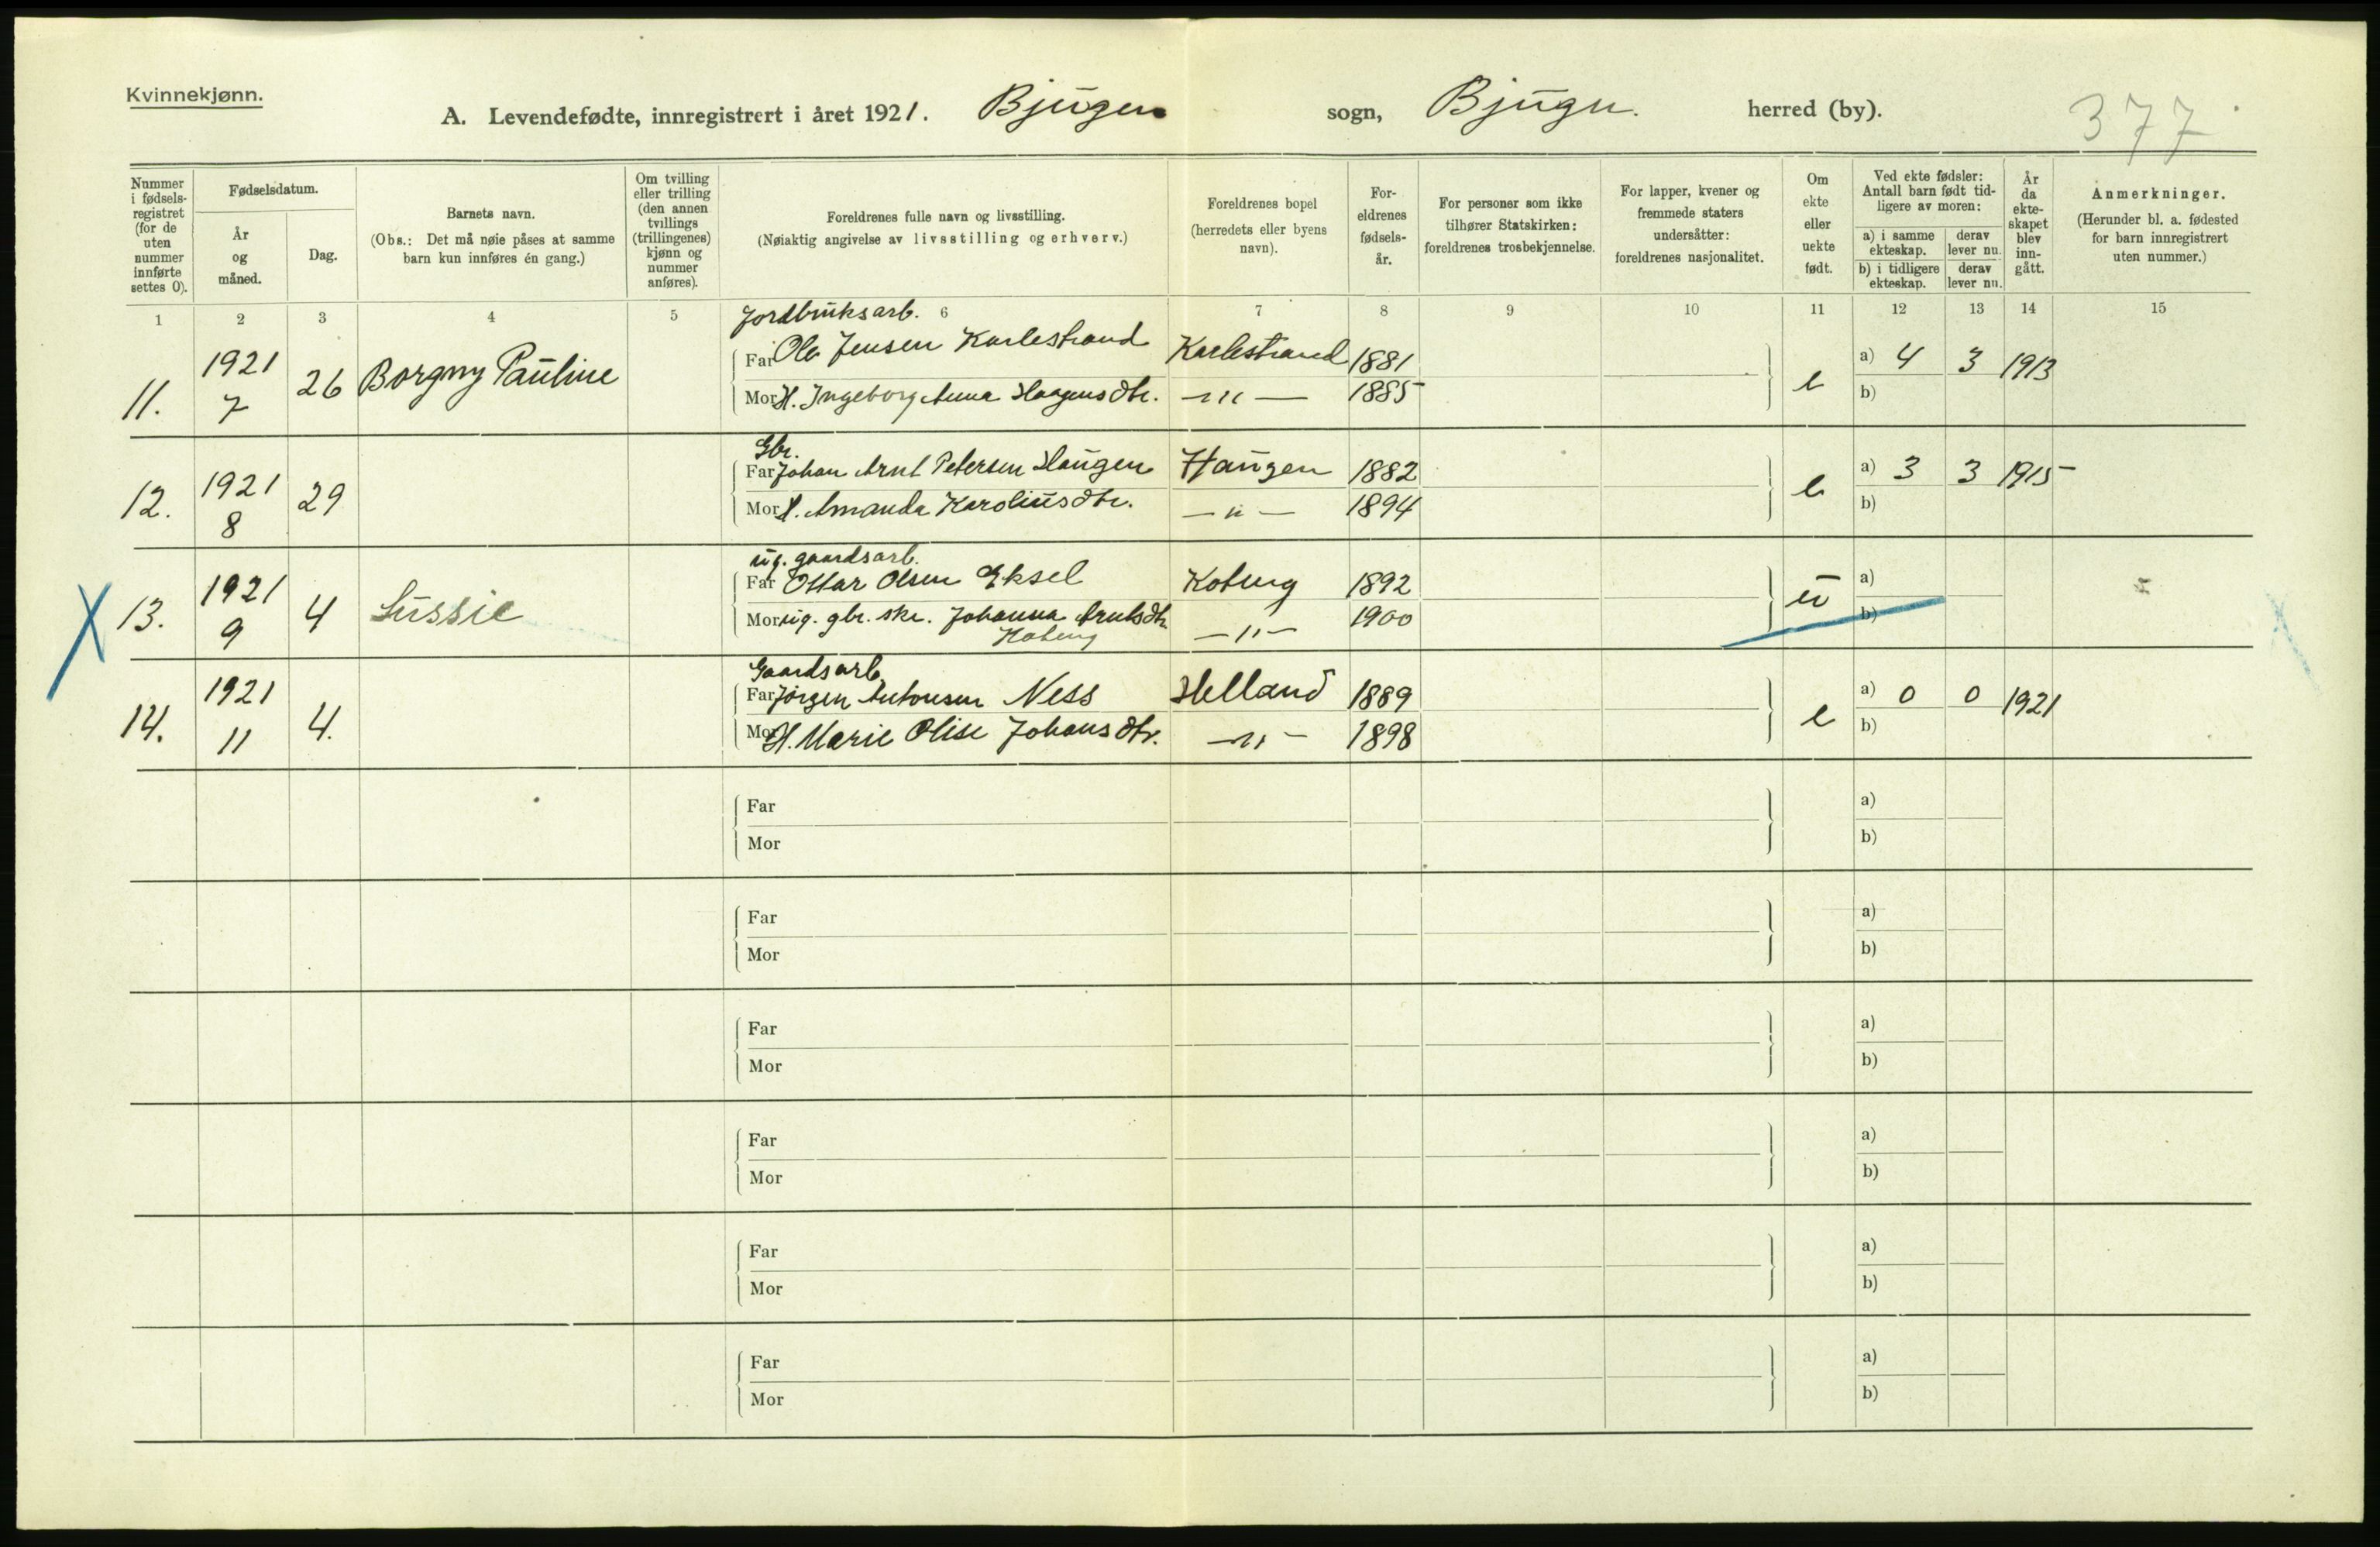 Kvinnekjønn.
A. Levendefødte, innregistrert i året 1921. Bjugn sogn, Bjugn. herred (by). 377
Nummer i fødselsregistret (for de uten nummer innførte settes 0).
Fødselsdatum.
År og måned.
Dag.
Barnets navn.
(Obs.: Det må nøie påses at samme barn kun innføres én gang.)
Om tvilling eller trilling (den annen tvillings (trillingenes) kjønn og nummer anføres).
Foreldrenes fulle navn og livsstilling.
(Nøiaktig angivelse av livsstilling og erhverv.)
Foreldrenes bopel
(herredets eller byens navn).
Foreldrenes fødselsår.
For personer som ikke tilhører Statskirken: foreldrenes trosbekjennelse.
For lapper, kvener og fremmede staters undersåtter: foreldrenes nasjonalitet.
Om ekte eller uekte født.
Ved ekte fødsler: Antall barn født tidligere av moren:
a) i samme ekteskap. derav lever nu.
b) i tidligere ekteskap. derav lever nu.
År da ekteskapet blev inngått.
Anmerkninger.
(Herunder bl. a. fødested for barn innregistrert uten nummer.)
1 2 3 4 5 6 7 8 9 10 11 12 13 14 15
Jordbruksarb.
11. 1921 7 26 Borgny Pauline
Far Ole Jensen Karlestrand Karlestrand 1881 e a) 4 3 1913
Mor H. Ingeborg Anna Haagensdtr. — " — 1885 b)
Gbr.
12. 1921 8 29
Far Johan Arnt Petersen Haugen Haugen 1882 e a) 3 3 1915
Mor H. Amanda Karoliusdtr. — " — 1894 b)
ug. gaardsarb.
13. 1921 9 4 Sussie
Far Ottar Olsen Eksel Koteng 1892 u a)
Mor ug. gbr. Johanna Arntsdtr. — " — 1900 b)
Koteng
Gaardsarb.
14. 1921 11 4.
Far Jørgen Antonsen Ness Helland 1889 e a) 0 0 1921
Mor H. Marie Olise Johansdtr. — " — 1898 b)
Far a)
Mor b)
Far a)
Mor b)
Far a)
Mor b)
Far a)
Mor b)
Far a)
Mor b)
Far a)
Mor b)